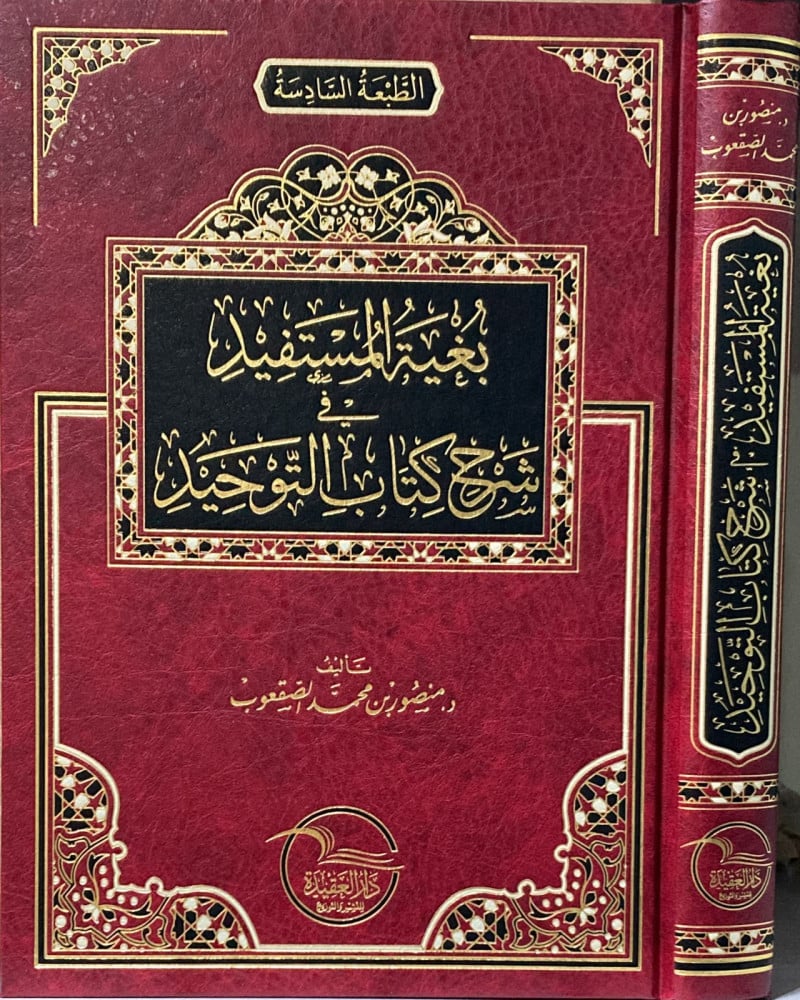 الطَّبْعَةُ السَّادِسَةُ
بُغْيَةُ الْمُسْتَفِيدِ
فِي
شَرْحِ كِتَابِ التَّوْحِيدِ
تَأليفُ
د. منصُور بن محمَّد الصقعوب
دَارُ العَقِيدَة
لِلنَّشْرِ وَالتَّوْزِيع
د. منصُور بن
محمَّد الصقعوب
بُغْيَةُ الْمُسْتَفِيدِ فِي شَرْحِ كِتَابِ التَّوْحِيدِ
دَارُ العَقِيدَة
لِلنَّشْرِ وَالتَّوْزِيع